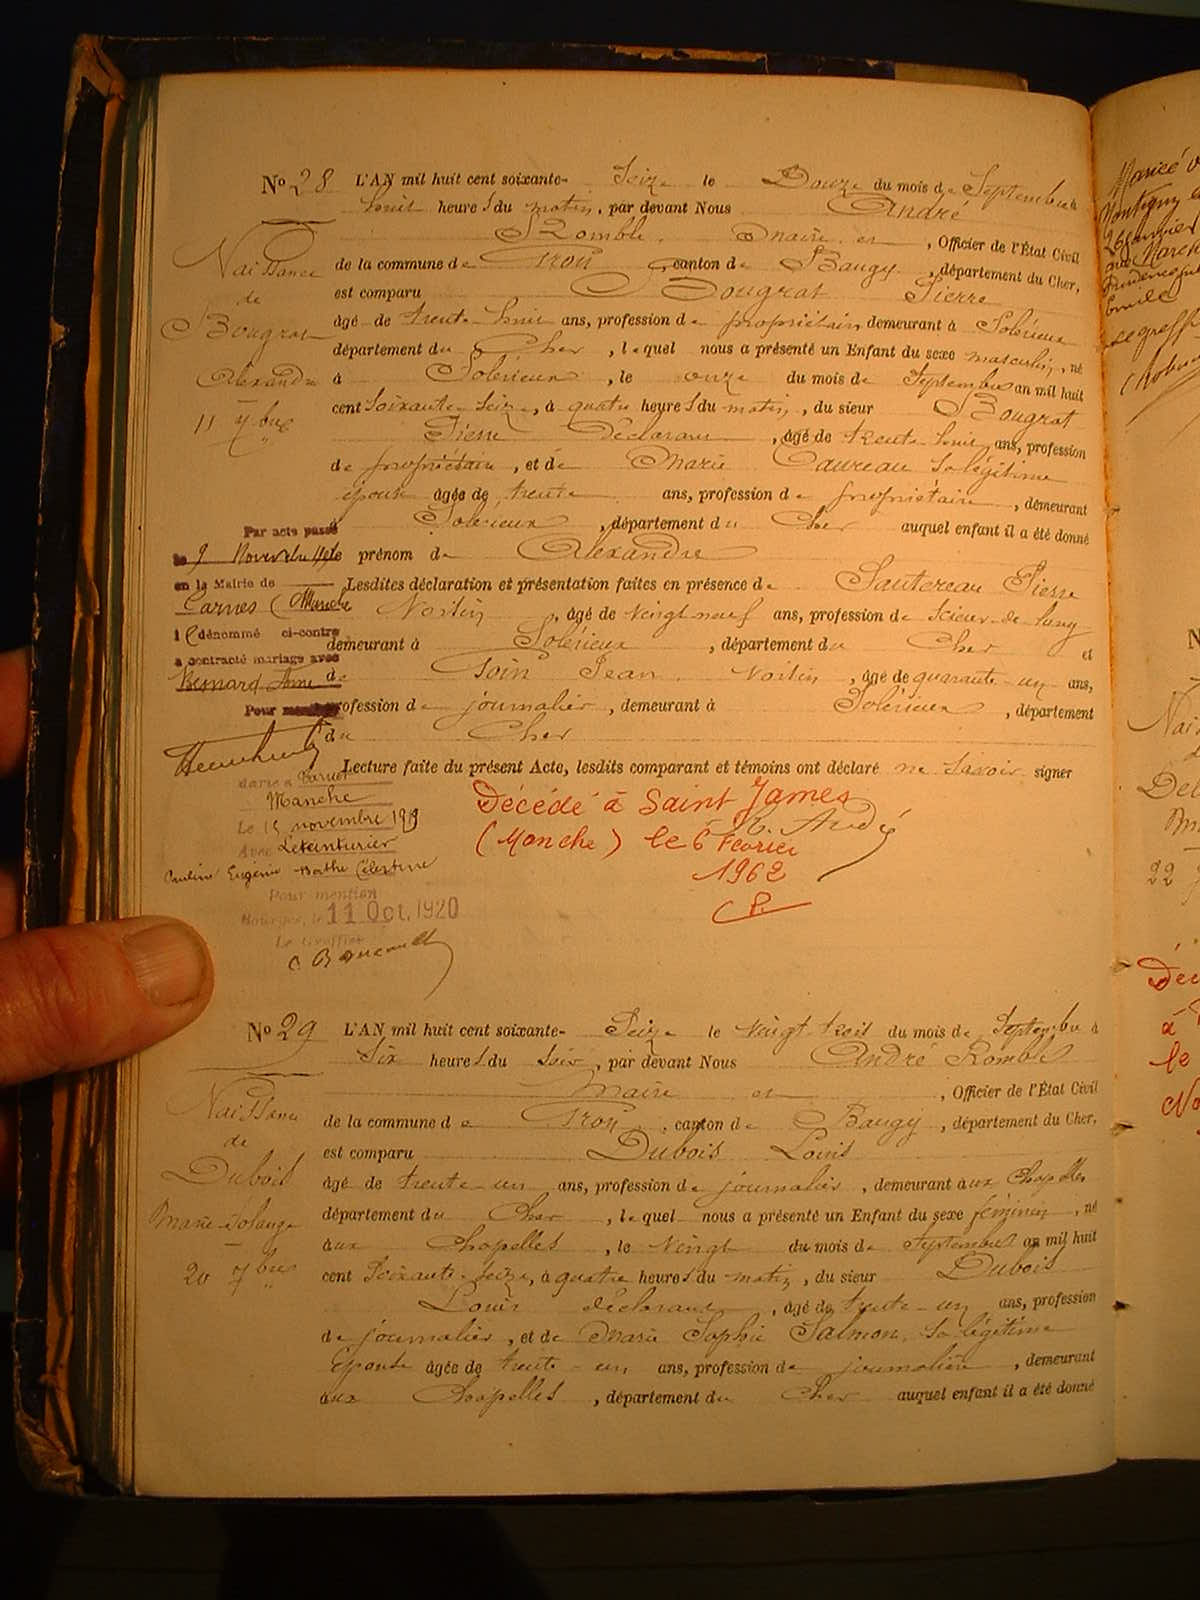 No 28 L'AN mil huit cent soixante- Seize le Douze du mois de Septembre à
huit heures du matin, par devant Nous André
Romble, Maire et , Officier de l'État Civil
de la commune de Crou , canton de Baugy , département du Cher,
est comparu Bougrat Pierre
âgé de trente huit ans, profession de propriétaire demeurant à Solérieux
département du Cher , lequel nous a présenté un Enfant du sexe masculin, né
à Solérieux , le onze du mois de Septembre an mil huit
cent soixante-seize, à quatre heures du matin, du sieur Bougrat
Pierre Déclarant , âgé de trente huit ans, profession
de propriétaire , et de Marie Taureau sa légitime
épouse âgée de trente ans, profession de propriétaire , demeurant
à Solérieux , département du Cher auquel enfant il a été donné
le prénom de Alexandre
Lesdites déclaration et présentation faites en présence de Sautereau Pierre
Voisin , âgé de vingt neuf ans, profession de scieur de long
demeurant à Solérieux , département du Cher et
de Join Jean Voisin , âgé de quarante-un ans,
profession de journalier , demeurant à Solérieux , département
du Cher
Lecture faite du présent Acte, lesdits comparant et témoins ont déclaré ne savoir signer
Naissance
de
Bougrat
Alexandre
11 7bre
Par acte passé
le 9 Novembre
en la Mairie de
Carnet (Manche
l dénommé ci-contre
a contracté mariage avec
Besnard Anne
Pour mention
Marié à Carnet
Manche
Le 15 novembre 1919
Avec Leteinturier
Pauline Eugénie Berthe Célestine
Pour mention
Bourges, le 11 Oct. 1920
Le Greffier
Décédé à Saint James
(Manche) le 6 Février
1962
No 29 L'AN mil huit cent soixante- Seize le vingt trois du mois de Septembre à
Six heures du soir, par devant Nous André Romble
Maire et , Officier de l'État Civil
de la commune de Crou , canton de Baugy , département du Cher,
est comparu Dubois Louis
âgé de trente-un ans, profession de journalier , demeurant aux Chapelles
département du Cher , lequel nous a présenté un Enfant du sexe féminin , né
aux Chapelles , le vingt du mois de Septembre an mil huit
cent soixante-seize, à quatre heures du matin , du sieur Dubois
Louis déclarant , âgé de trente-un ans, profession
de journalier , et de Marie Sophie Salmon, sa légitime
épouse âgée de trente-un ans, profession de journalière , demeurant
aux Chapelles , département du Cher auquel enfant il a été donné
Naissance
de
Dubois
Marie-Solange
20 7bre